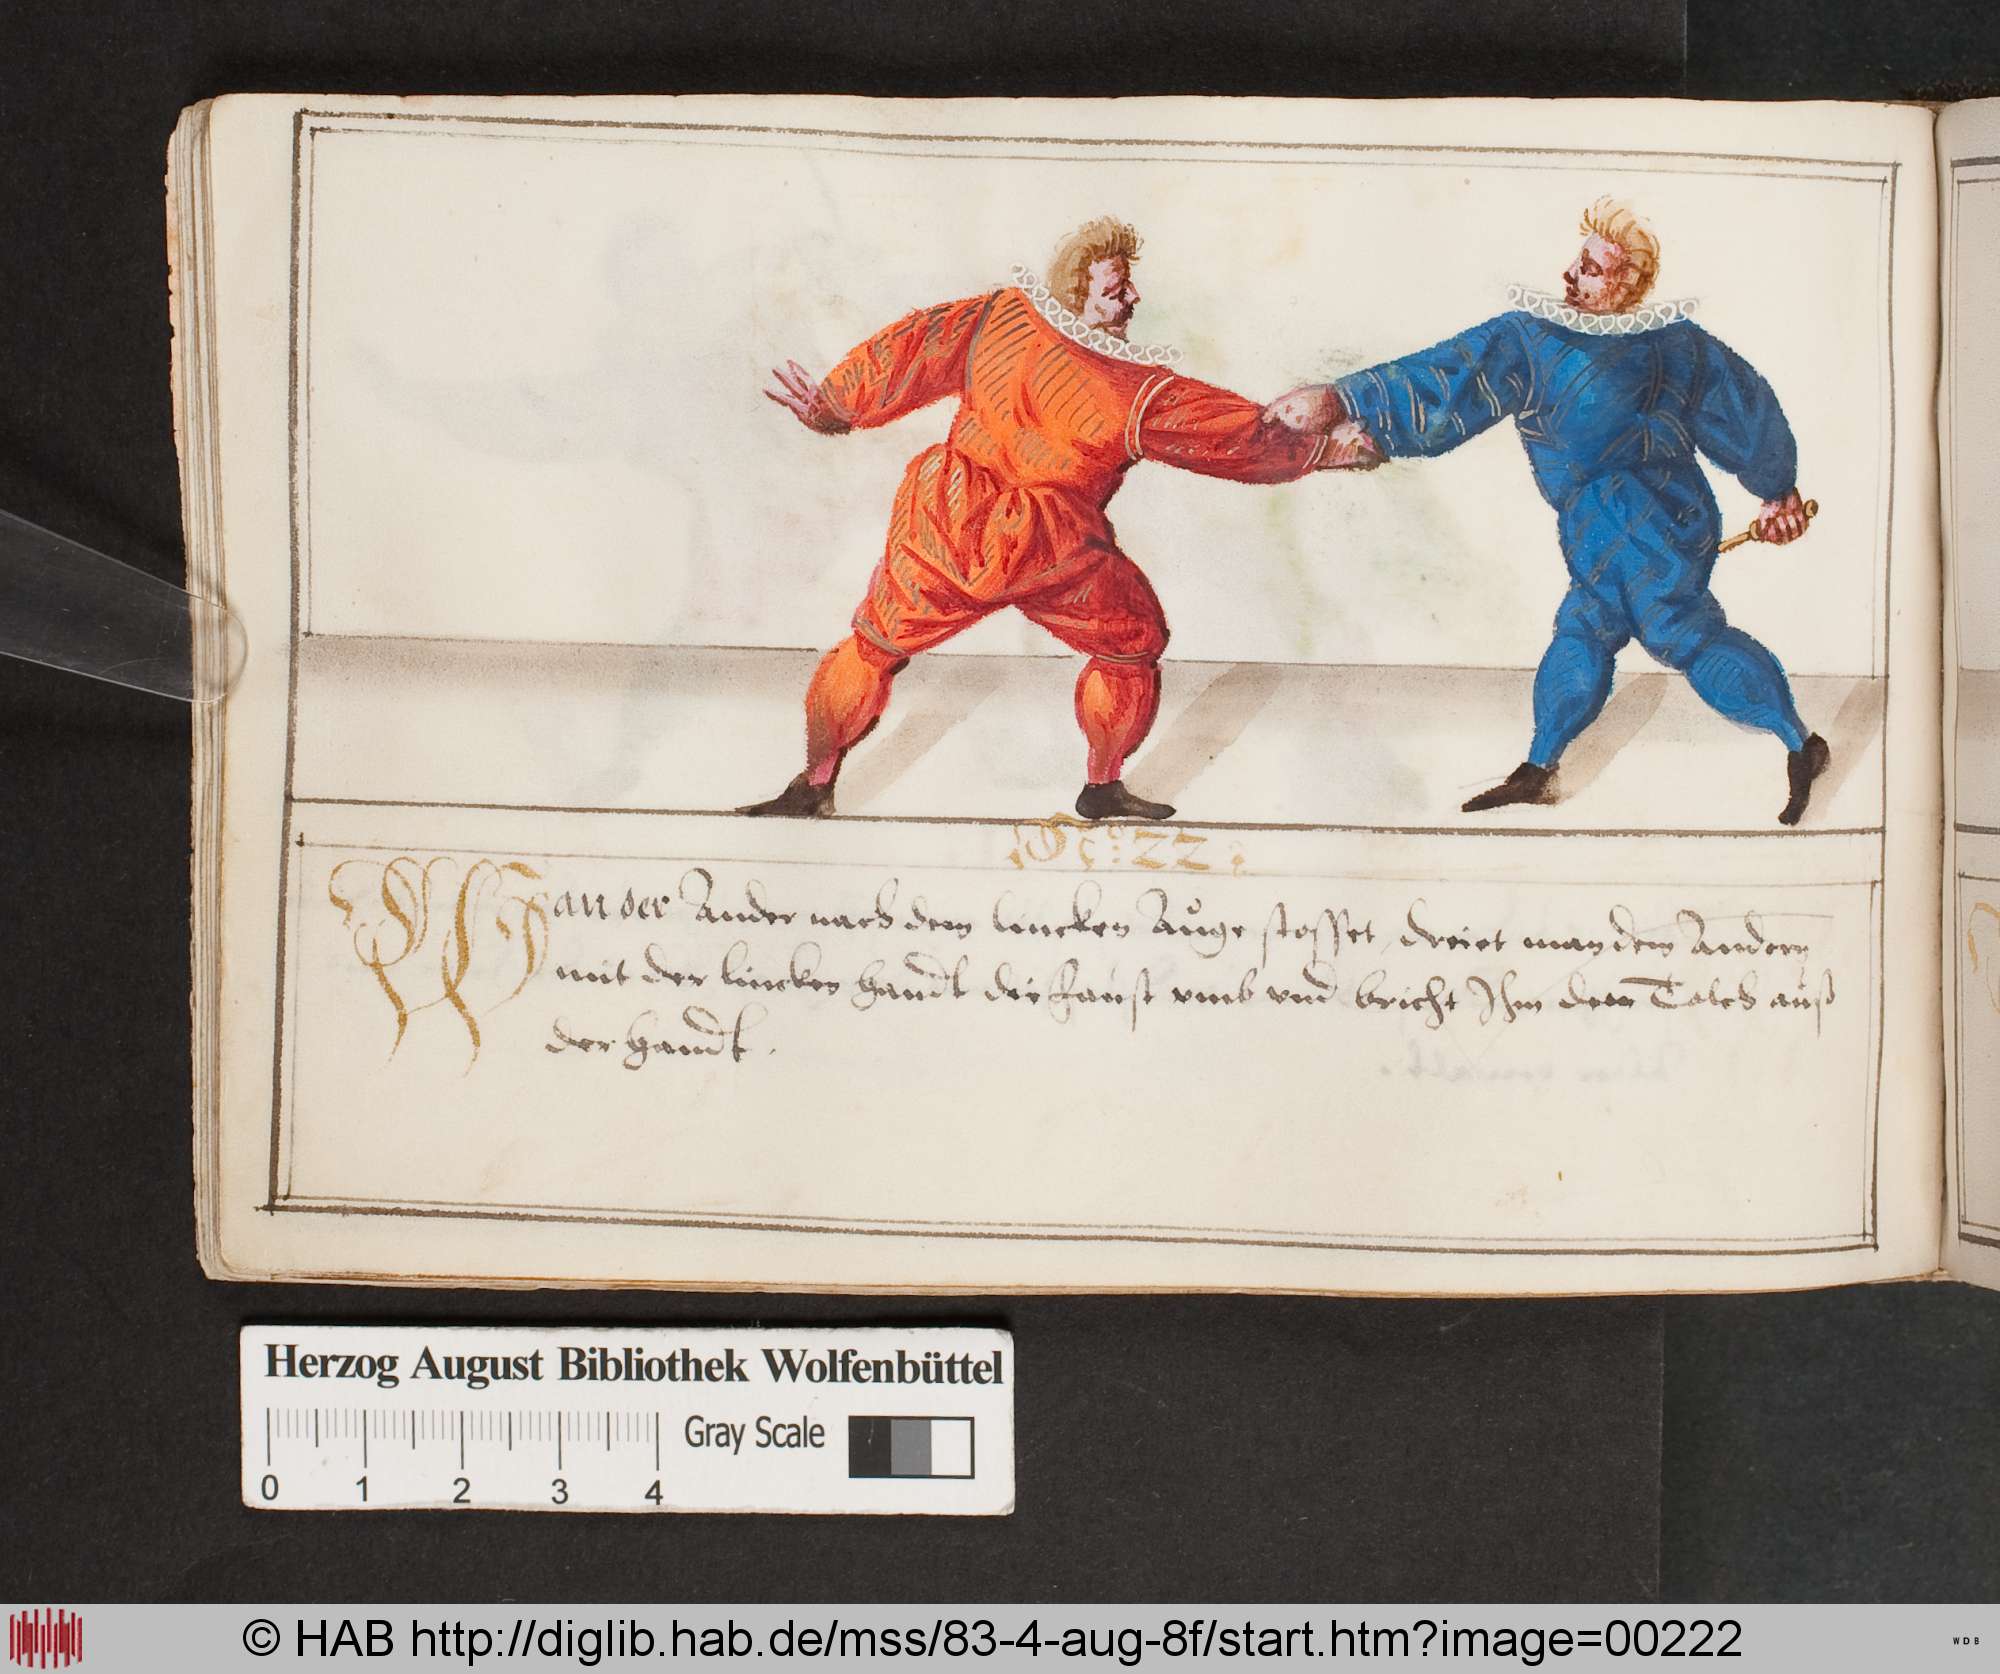 N: 22:
Wan der Ander nach dem lincken Auge stosset, dreiet man dem Andern
mit der lincken handt die faust vmb vnd bricht Ihm den Tolch auß
der handt.
Herzog August Bibliothek Wolfenbüttel
Gray Scale
0 1 2 3 4
© HAB http://diglib.hab.de/mss/83-4-aug-8f/start.htm?image=00222
WDB